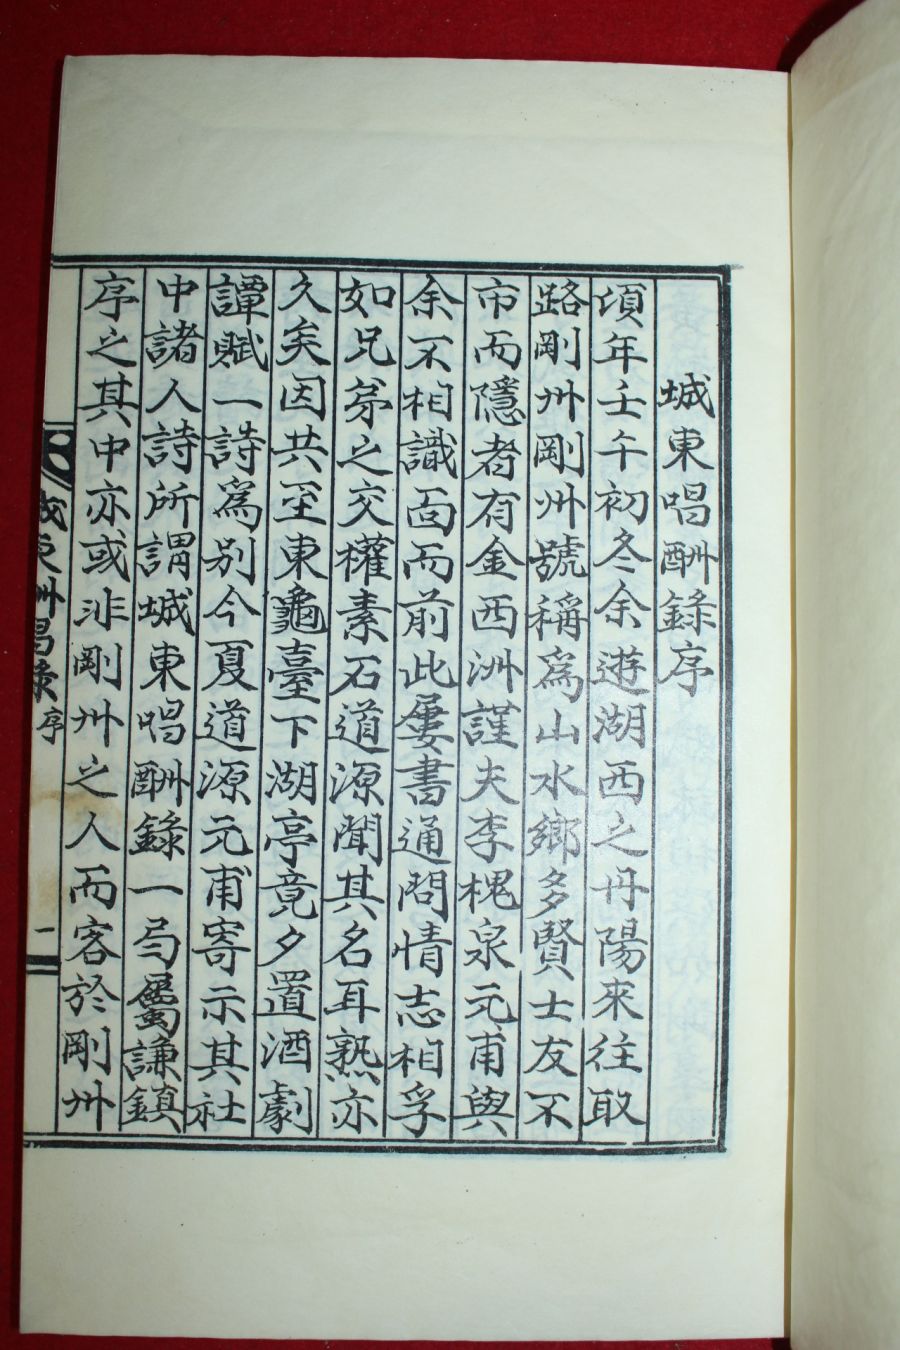 城東唱酬錄序
頃年壬午初冬余遊湖西之丹陽來往取
路剛州剛州號稱爲山水鄉多賢士友不
市而隱者有金西洲謹夫李槐泉元甫與
余不相識面而前此屢書通問情志相孚
如兄弟之交權素石道源聞其名耳熟亦
久矣因共至東龜臺下湖亭竟夕置酒劇
譚賦一詩爲別今夏道源元甫寄示其社
中諸人詩所謂城東唱酬錄一局屬謙鎮
序之其中亦或非剛州之人而客於剛州
城東酬唱錄 序
一